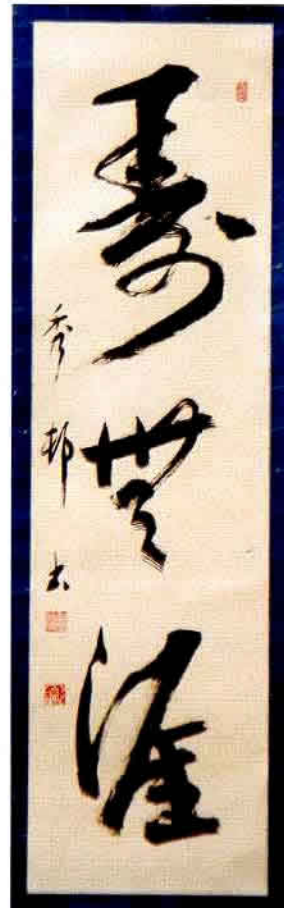 壽無涯
秀邨書